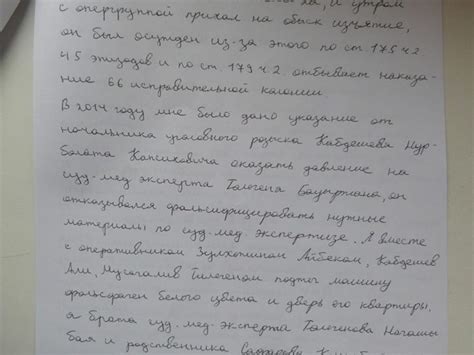 ха, и утром
с опергруппой приехал на обыск изъятие,
он был осужден из-за этого по ст. 175 ч 2
45 эпизодов и по ст. 179 ч. 2. отбывает наказа-
ние 66 исправительной колонии
В 2014 году мне было дано указание от
начальника уголовного розыска Кабдешева Нур-
болата Капсиховича оказать давление на
суд. мед. эксперта Бауыржана, он
отказывался фальсифицировать нужные
материалы по суд. мед. экспертизе. Я вместе
с оперативником Айбеком, Кабдешев
Али, Мусагалив Тилегеном машину
белого цвета и дверь его квартиры,
а брата суд. мед. эксперта
бая и родственника